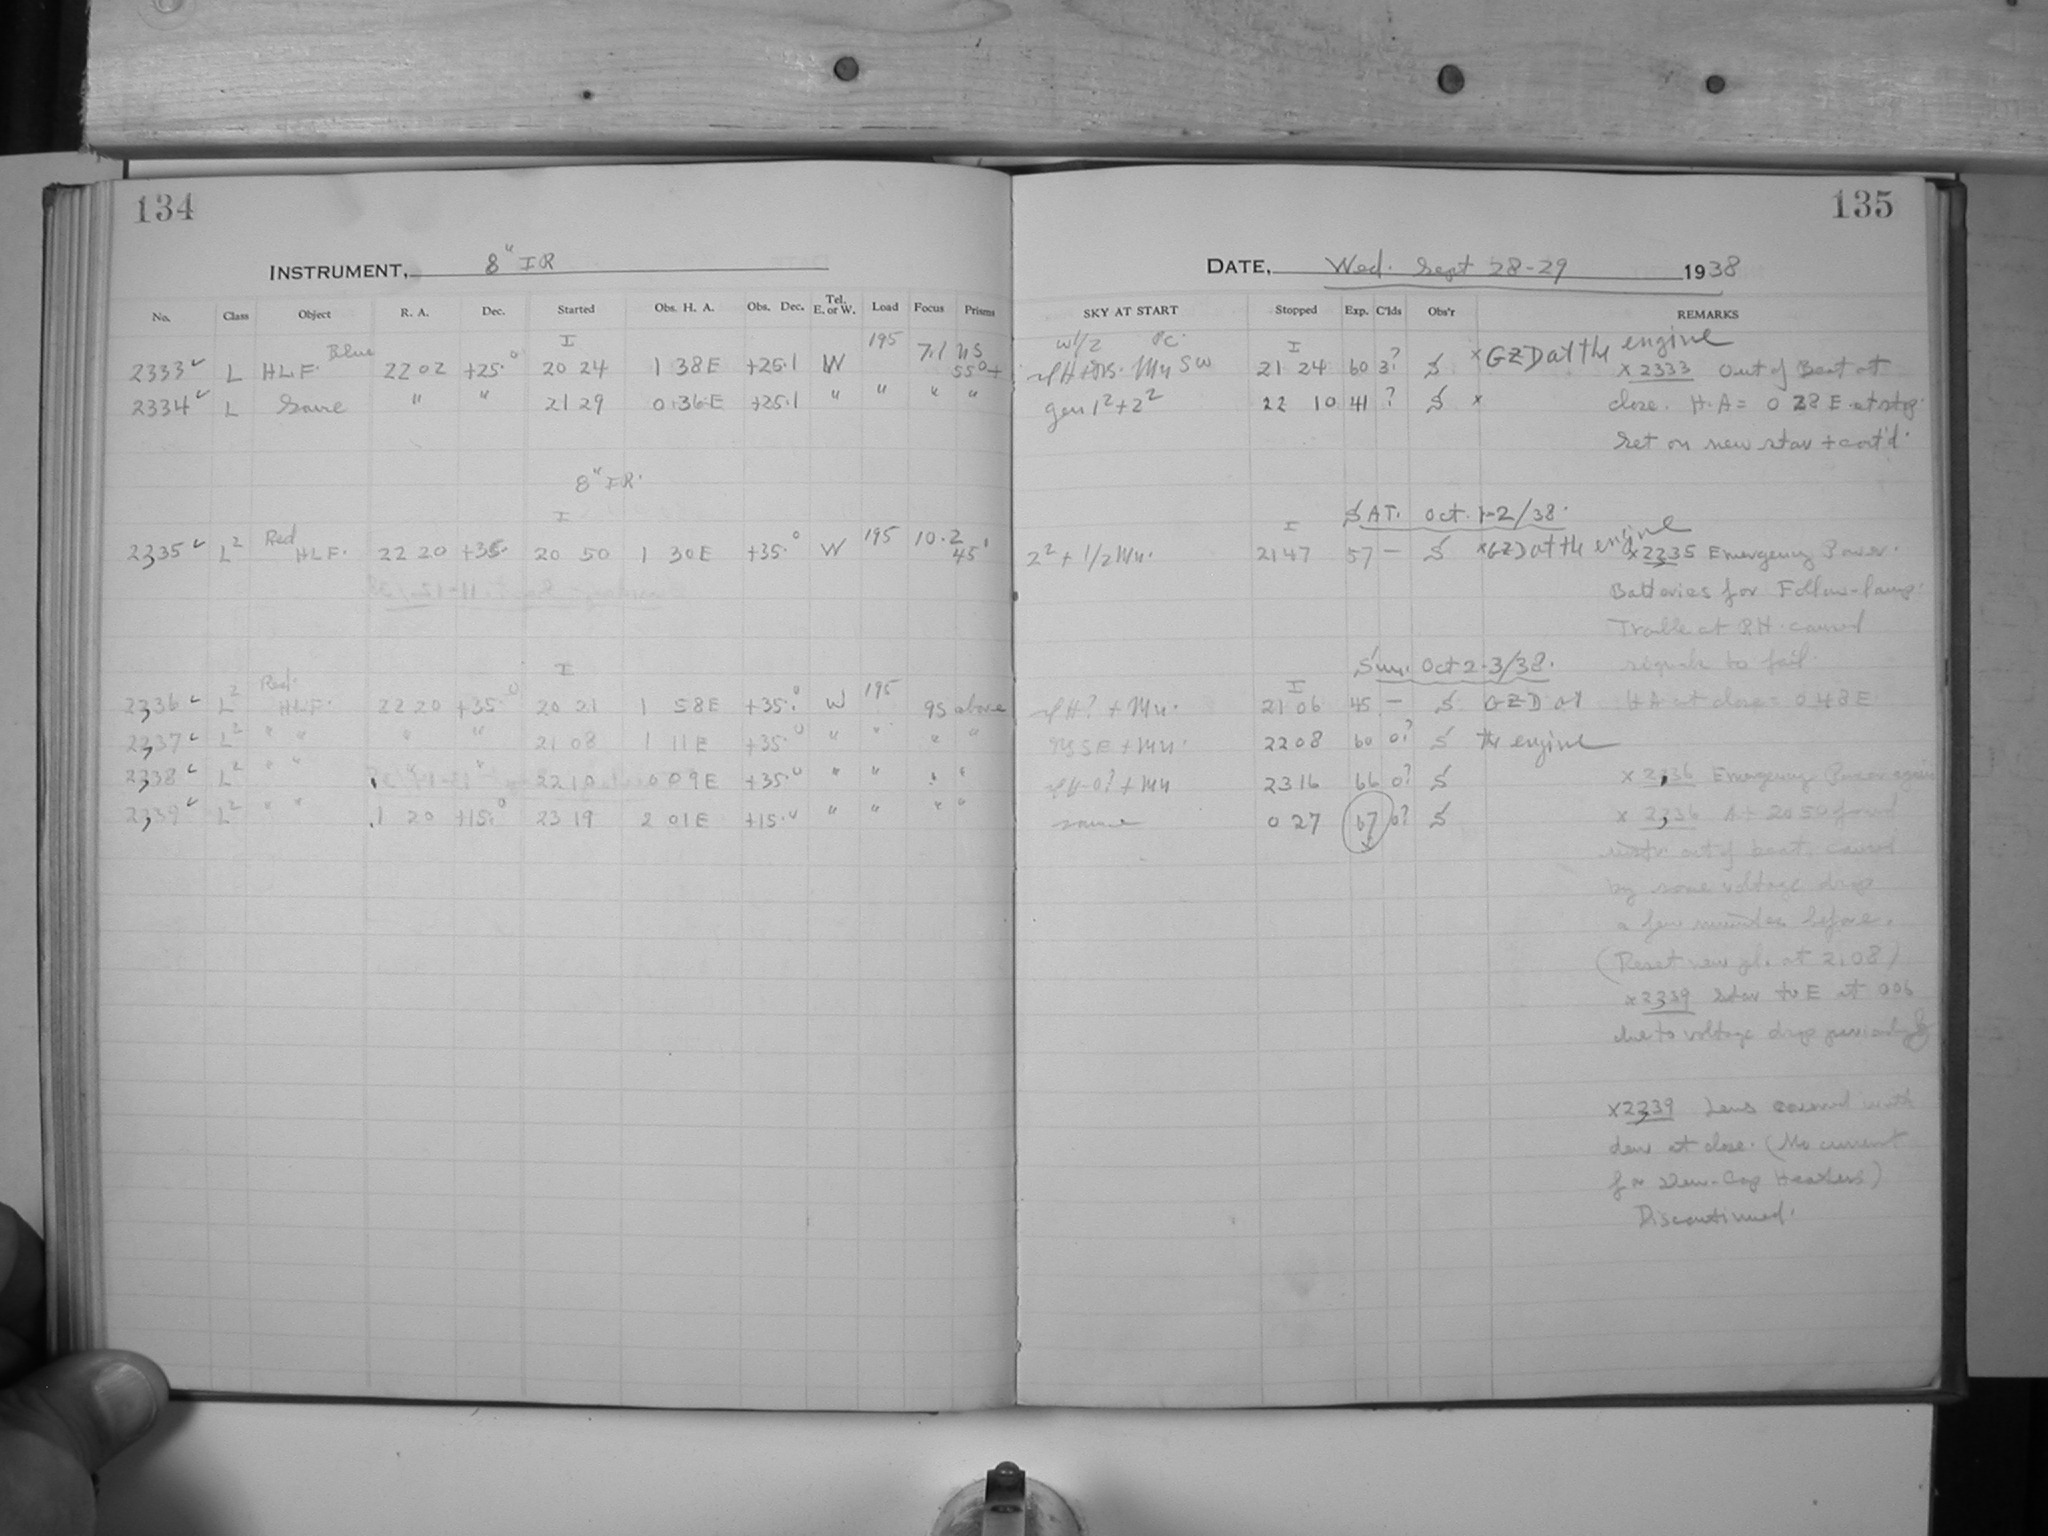 134
INSTRUMENT, 8" IR
No. Class Object R. A. Dec. Started Obs. H. A. Obs. Dec. Tel. E. or W. Load Focus Prisms
I
2333 ✓ L HLF. Blue 22 02 +25.° 20 24 1 38 E +25.1 W 195 7.1
2334 ✓ L Same " " 21 29 0 36 E +25.1 " " " "
8" IR.
I
2335 ✓ L² Red HLF. 22 20 +35. 20 50 1 30 E +35.° W 195 10.2 45'
I
2336 ✓ L² Red. HLF. 22 20 +35.° 20 21 1 58 E +35.° W 195 95 above
2337 ✓ L² " " " " 21 08 1 11 E +35.° " " " "
2338 ✓ L² " " " " 22 10 0 09 E +35.° " " " "
2339 ✓ L² " " 1 20 +15.° 23 19 2 01 E +15.° " " " "
135
DATE, Wed. Sept 28-29 1938
SKY AT START Stopped Exp. C'lds Obs'r REMARKS
I
21 24 60 3? S x GZD at the engine
gen 1² + 2² 22 10 41 ? S x
x 2333 Out of Beat at
close. H.A = 0 28 E at stop.
Set on new star + cont'd.
SAT. Oct. 1-2/38.
I
2² + 1/2 Mn. 21 47 57 — S x GZD at the engine
x 2335 Emergency Power.
Batteries for Follow-lamp.
Trouble at P.H. caused
signals to fail.
HA at close = 0 48 E
Sun. Oct 2-3/38.
I
H? + Mn. 21 06 45 — S GZD at
+ Mn. 22 08 60 0? S the engine
+ Mn 23 16 66 0? S
same 0 27 67 0? S
x 2336 Emergency Power again
x 2336 At 20 50 found
instr. out of beat, caused
by some voltage drop
a few minutes before.
(Reset new pl. at 21 08)
x 2339 Star to E at 0 06
due to voltage drop previously
x 2339 Lens covered with
dew at close. (No current
for Dew-Cap Heaters)
Discontinued.